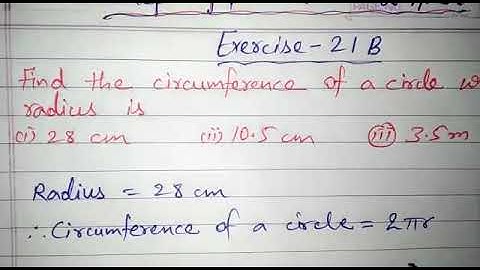 Exercise - 21 B
Find the circumference of a circle
radius is
(i) 28 cm (ii) 10.5 cm (iii) 3.5 m
Radius = 28 cm
∴ Circumference of a circle = 2πr